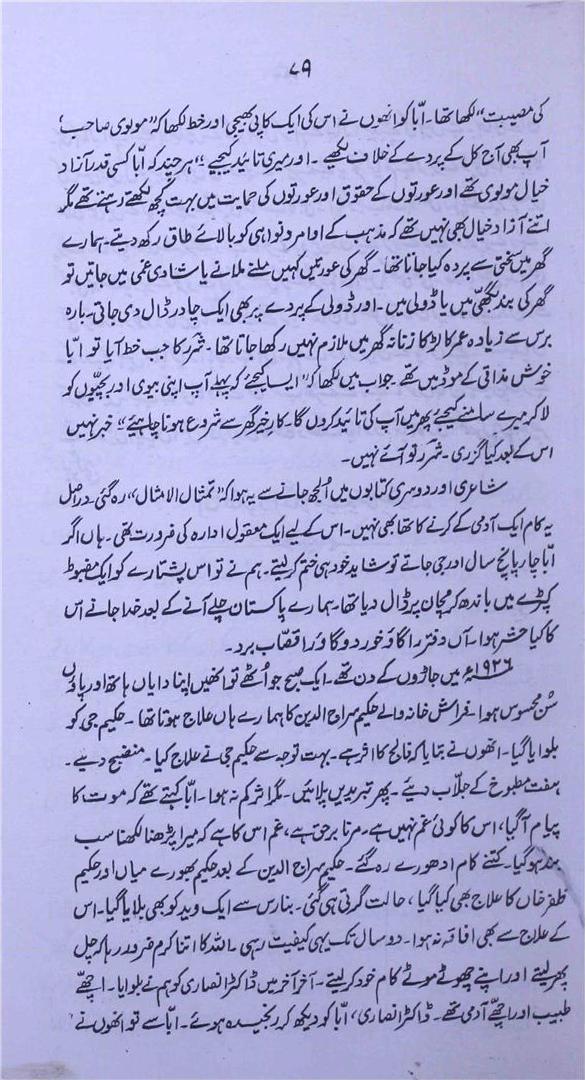 ۷۹
کی مصیبت“ لکھا تھا۔ ابّا کو انھوں نے اس کی ایک کاپی بھیجی اور خط لکھا کہ ”مولوی صاحب‘
آپ بھی آج کل کے پردے کے خلاف لکھیے۔ اور میری تائید کیجیے“ ہر چند کہ ابّا کسی قدر آزاد
خیال مولوی تھے اور عورتوں کے حقوق اور عورتوں کی حمایت میں بہت کچھ لکھتے رہتے تھے مگر
اتنے آزاد خیال بھی نہیں تھے کہ مذہب کے اوامر و نواہی کو بالائے طاق رکھ دیتے۔ ہمارے
گھر میں سختی سے پردہ کیا جاتا تھا۔ گھر کی عورتیں کہیں ملنے ملانے یا شادی غمی میں جاتیں تو
گھر کی بند بگھّی میں یا ڈولی میں۔ اور ڈولی کے پردے پر بھی ایک چادر ڈال دی جاتی۔ بارہ
برس سے زیادہ عمر کا لڑکا زنانہ گھر میں ملازم نہیں رکھا جاتا تھا۔ شرر کا جب خط آیا تو ابّا
خوش مذاقی کے موڈ میں تھے۔ جواب میں لکھا کہ ”ایسا کیجئے کہ پہلے آپ اپنی بیوی اور بچیّوں کو
لا کر میرے سامنے کیجئے پھر میں آپ کی تائید کروں گا۔ کارِ خیر گھر سے شروع ہونا چاہیئے“ خبر نہیں
اس کے بعد کیا گزری۔ شرر تو آئے نہیں۔
شاعری اور دوسری کتابوں میں اُلجھ جانے سے یہ ہوا کہ ”تمثال الامثال“ رہ گئی۔ دراصل
یہ کام ایک آدمی کے کرنے کا تھا بھی نہیں۔ اس کے لیے ایک معقول ادارہ کی ضرورت تھی۔ ہاں اگر
ابّا چار پانچ سال اور جی جاتے تو شاید خود ہی ختم کر لیتے۔ ہم نے تو اس پشتارے کو ایک مضبوط
کپڑے میں باندھ کر مچان پر ڈال دیا تھا۔ ہمارے پاکستان چلے آنے کے بعد خدا جانے اس
کا کیا حشر ہوا۔ آں دفتر را گاؤ خورد و گاؤ را قصّاب برد۔
۱۹۲۶ء میں جاڑوں کے دن تھے۔ ایک صبح جو اُٹھے تو انھیں اپنا دایاں ہاتھ اور پاؤں
سُن محسوس ہوا۔ فراش خانہ والے حکیم سراج الدین کا ہمارے ہاں علاج ہوتا تھا۔ حکیم جی کو
بلوایا گیا۔ انھوں نے بتایا کہ فالج کا اثر ہے۔ بہت توجہ سے حکیم جی نے علاج کیا۔ منضج دیے۔
ہفت مطبوخ کے جلّاب دیئے۔ پھر تبریدیں پلائیں۔ مگر اثر کم نہ ہوا۔ ابّا کہتے تھے کہ موت کا
پیام آ گیا، اس کا کوئی غم نہیں ہے۔ مرنا برحق ہے، غم اس کا ہے کہ میرا پڑھنا لکھنا سب
بند ہو گیا۔ کتنے کام ادھورے رہ گئے۔ حکیم سراج الدین کے بعد حکیم بھورے میاں اور حکیم
ظفر خاں کا علاج بھی کیا گیا، حالت گرتی ہی گئی۔ بنارس سے ایک وید کو بھی بلایا گیا۔ اس
کے علاج سے بھی افاقہ نہ ہوا۔ دو سال تک یہی کیفیت رہی۔ اللہ کا اتنا کرم ضرور رہا کہ چل
پھر لیتے اور اپنے چھوٹے موٹے کام خود کر لیتے۔ آخر آخر میں ڈاکٹر انصاری کو ہم نے بلوایا۔ اچھّے
طبیب اور اچھّے آدمی تھے۔ ڈاکٹر انصاری، ابّا کو دیکھ کر رنجیدہ ہوئے۔ ابّا سے تو انھوں نے